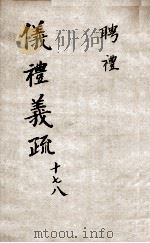 聘禮
儀禮義疏
十七八
mtoou.info